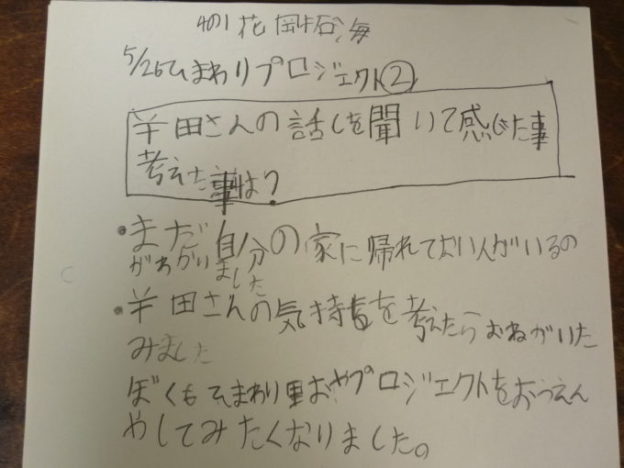 4の1 花岡拓海
5/26ひまわりプロジェクト②
半田さんの話しを聞いて感じた事
考えた事は?
・まだ自分の家に帰れてない人がいるの
がわかりました
・半田さんの気持ちを考えたらむねがいた
みました
ぼくもひまわり里おやプロジェクトをおうえん
やしてみたくなりました。